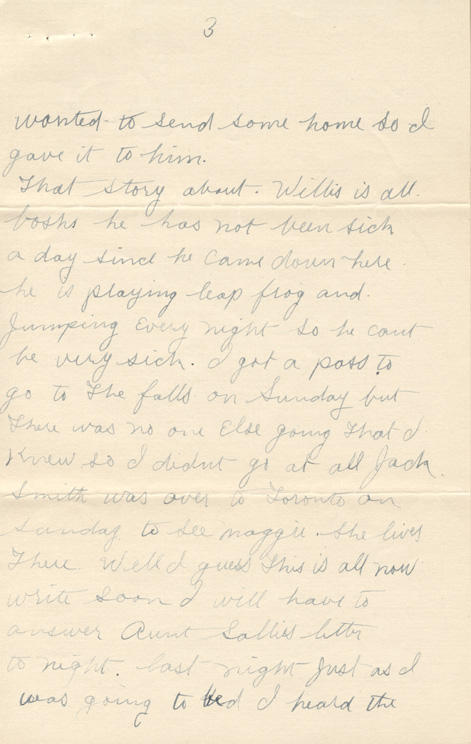 3
wanted to send some home so I
gave it to him.
That story about. Willis is all.
boshs he has not been sick
a day since he came down here.
he is playing leap frog and.
Jumping Every night so he cant
be very sick. I got a pass to
go to The falls on Sunday but
There was no one Else going That I
Knew so I didnt go at all Jack.
Smith was over to Toronto on
Sunday to see maggie. she lives
There. Well I guess This is all now
write soon I will have to
answer Aunt Sallies letter
to night. last night Just as I
was going to bed I heard the